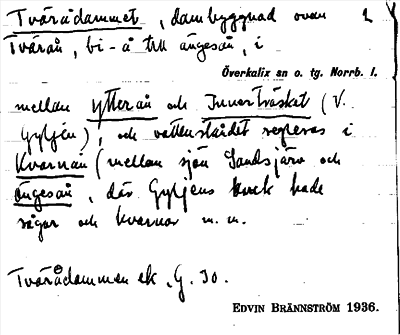 Tvärådammet, dambyggnad ovan 2
Tvärån, bi-å till ängesån, i
Överkalix sn o. tg. Norrb. l.
mellan ytterån och Innerträsket (V.
Gyljen), och vattenståndet regleras i
Kvarnån (mellan sjön Sandsjärv och
ängesån, där Gyljens bruk hade
sågar och kvarnar m. m.
Tvärådammen ek. G. 30.
EDVIN BRÄNNSTRÖM 1936.